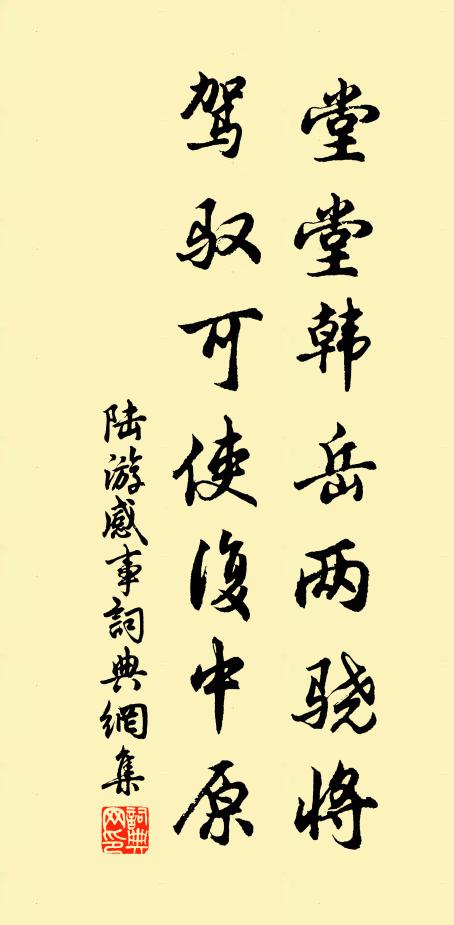 堂堂韩岳两骁将
驾驭可使復中原
陆游感事詞典網集
詞典网印